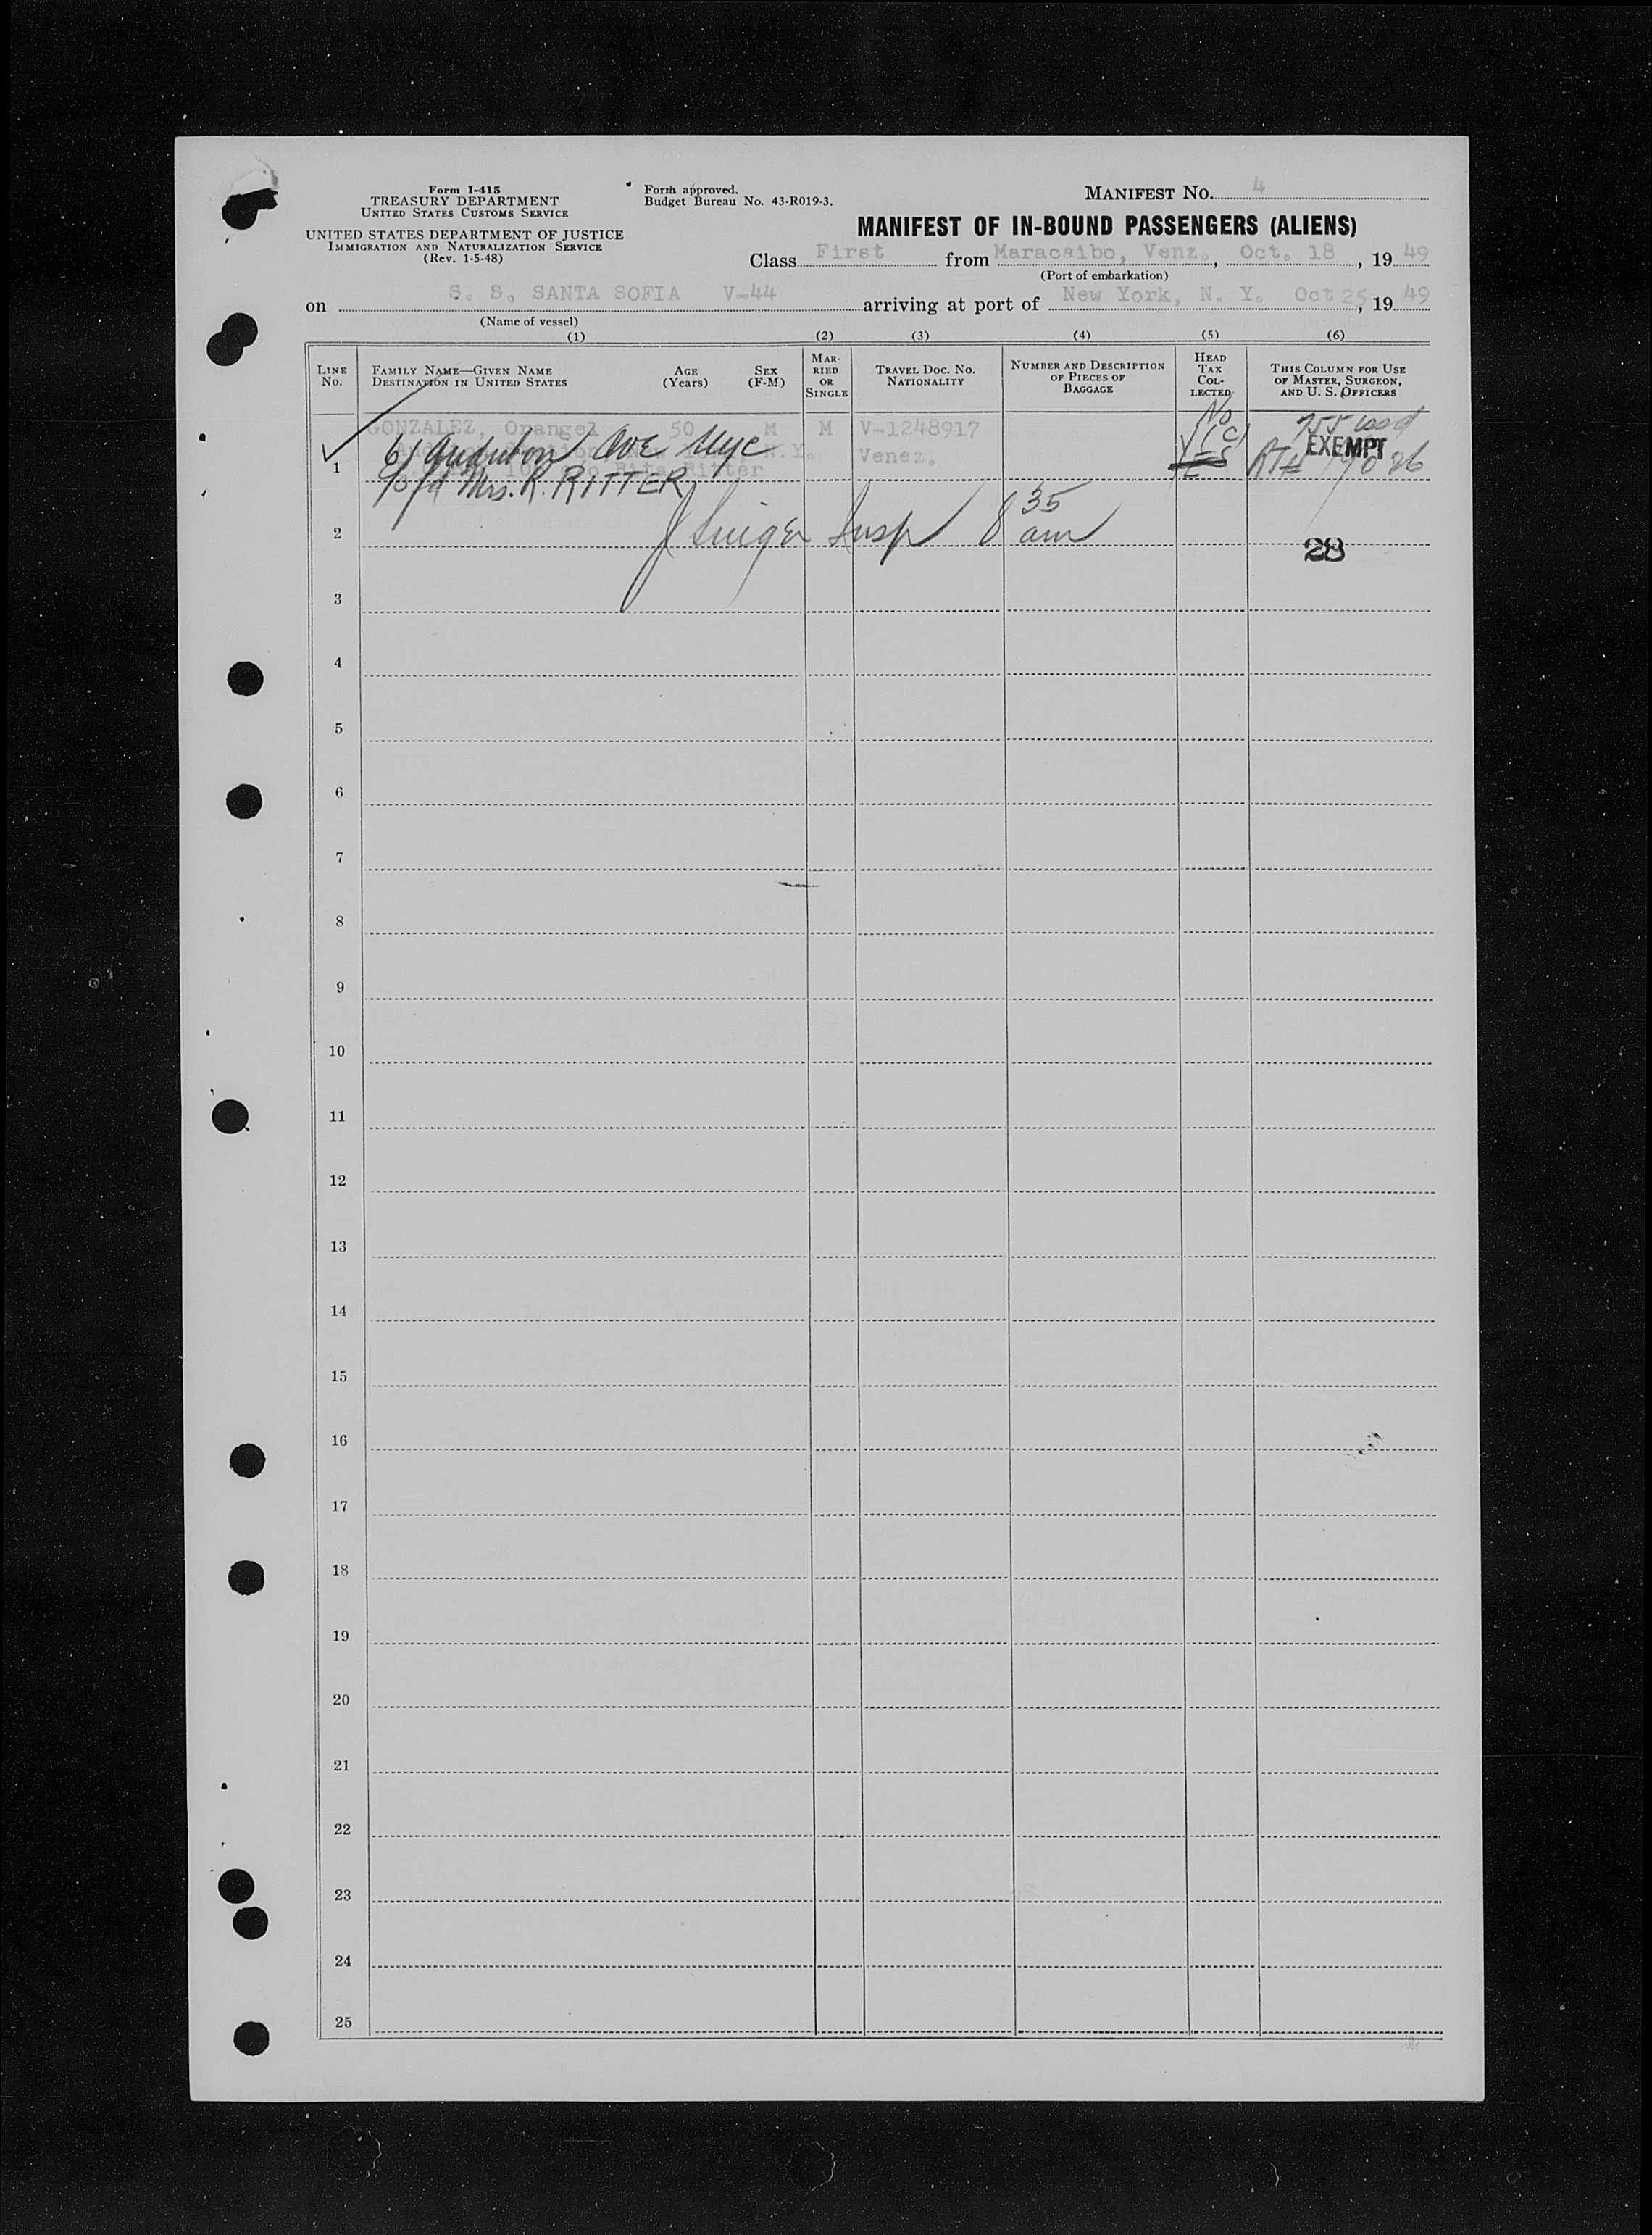 Form I-415
TREASURY DEPARTMENT
UNITED STATES CUSTOMS SERVICE
UNITED STATES DEPARTMENT OF JUSTICE
IMMIGRATION AND NATURALIZATION SERVICE
(Rev. 1-5-48)
Form approved.
Budget Bureau No. 43-R019-3.
MANIFEST NO. 4
MANIFEST OF IN-BOUND PASSENGERS (ALIENS)
Class First from Maracaibo, Venz., Oct. 18, 19 49
(Port of embarkation)
on S. S. SANTA SOFIA V-44 arriving at port of New York, N. Y. Oct 25, 19 49
(Name of vessel)
(1) (2) (3) (4) (5) (6)
LINE No.
FAMILY NAME—GIVEN NAME
DESTINATION IN UNITED STATES
AGE (Years)
SEX (F-M)
MARRIED OR SINGLE
TRAVEL DOC. NO. NATIONALITY
NUMBER AND DESCRIPTION OF PIECES OF BAGGAGE
HEAD TAX COLLECTED
THIS COLUMN FOR USE OF MASTER, SURGEON, AND U. S. OFFICERS
GONZALEZ, Orangel 50 M M V-1248917 No
61 Audubon Ave NYC N.Y. Venez. EXEMPT
1
c/o Mrs. R. RITTER
2
Insp 8 35 am
28
3
4
5
6
7
8
9
10
11
12
13
14
15
16
17
18
19
20
21
22
23
24
25